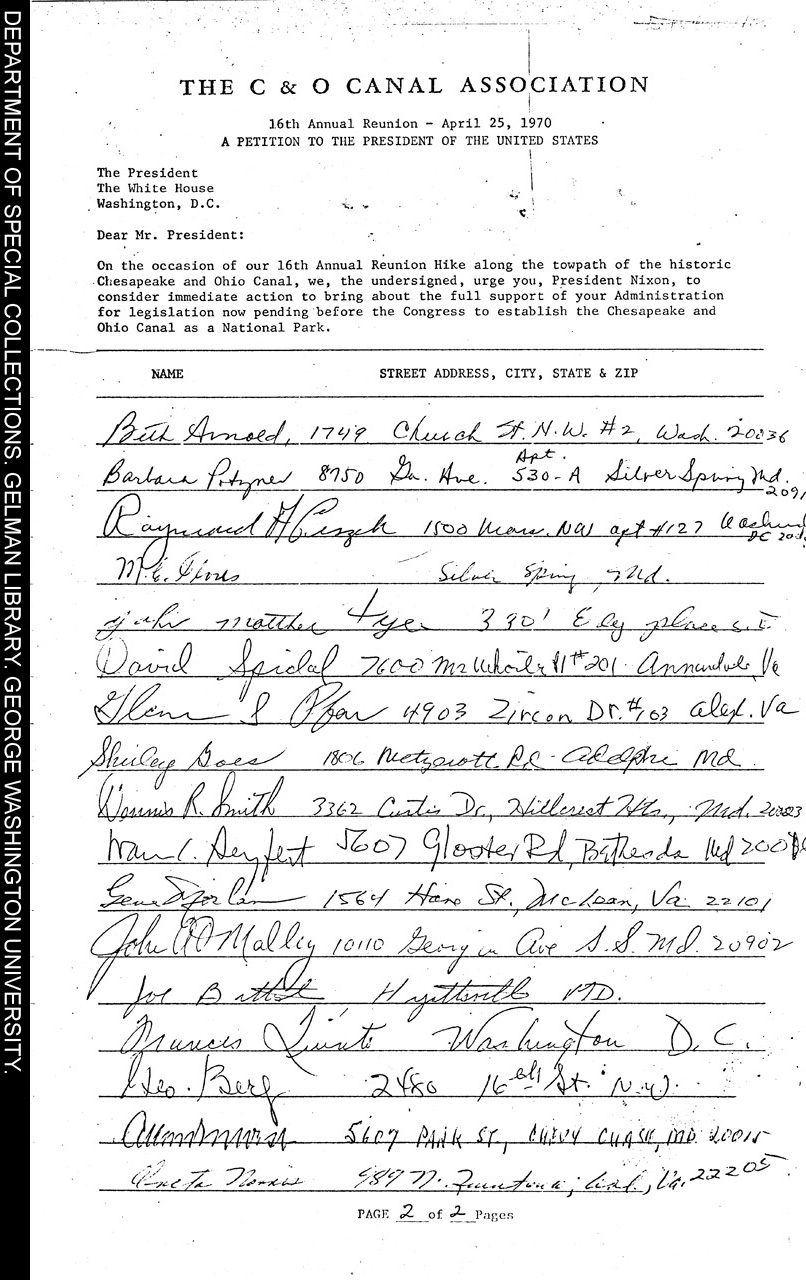 DEPARTMENT OF SPECIAL COLLECTIONS. GELMAN LIBRARY. GEORGE WASHINGTON UNIVERSITY.
THE C & O CANAL ASSOCIATION
16th Annual Reunion - April 25, 1970
A PETITION TO THE PRESIDENT OF THE UNITED STATES
The President
The White House
Washington, D.C.
Dear Mr. President:
On the occasion of our 16th Annual Reunion Hike along the towpath of the historic
Chesapeake and Ohio Canal, we, the undersigned, urge you, President Nixon, to
consider immediate action to bring about the full support of your Administration
for legislation now pending before the Congress to establish the Chesapeake and
Ohio Canal as a National Park.
NAME STREET ADDRESS, CITY, STATE & ZIP
Beth Arnold, 1749 Church St. N.W. #2, Wash. 20036
Barbara 8750 Ga. Ave. Apt. 530-A Silver Spring Md.
Raymond 1500 Mass. NW apt #127
M.E. Silver Spring, Md.
John Matthew Ely place S.E
David Spidal 7600 #201 Annandale Va
Glenn S 4903 Zircon Dr. #103 Alex. Va
Shirley Goes 1806 Metzerott Rd. Adelphi Md.
Dennis R. Smith 3362 Curtis Dr., Hillcrest Hts., Md.
Seyfert 5607 Gloster Rd, Bethesda Md
Gene 1564 St., McLean, Va. 22101
John A O'Malley 10110 Georgia Ave S.S. Md. 20902
Joe Hyattsville MD.
Frances Washington D.C.
Geo. Berg 2480 16th St. N.W.
5607 PARK ST., CHEVY CHASE, MD. 20015
Norris 989 N. Va. 22205
PAGE 2 of 2 Pages